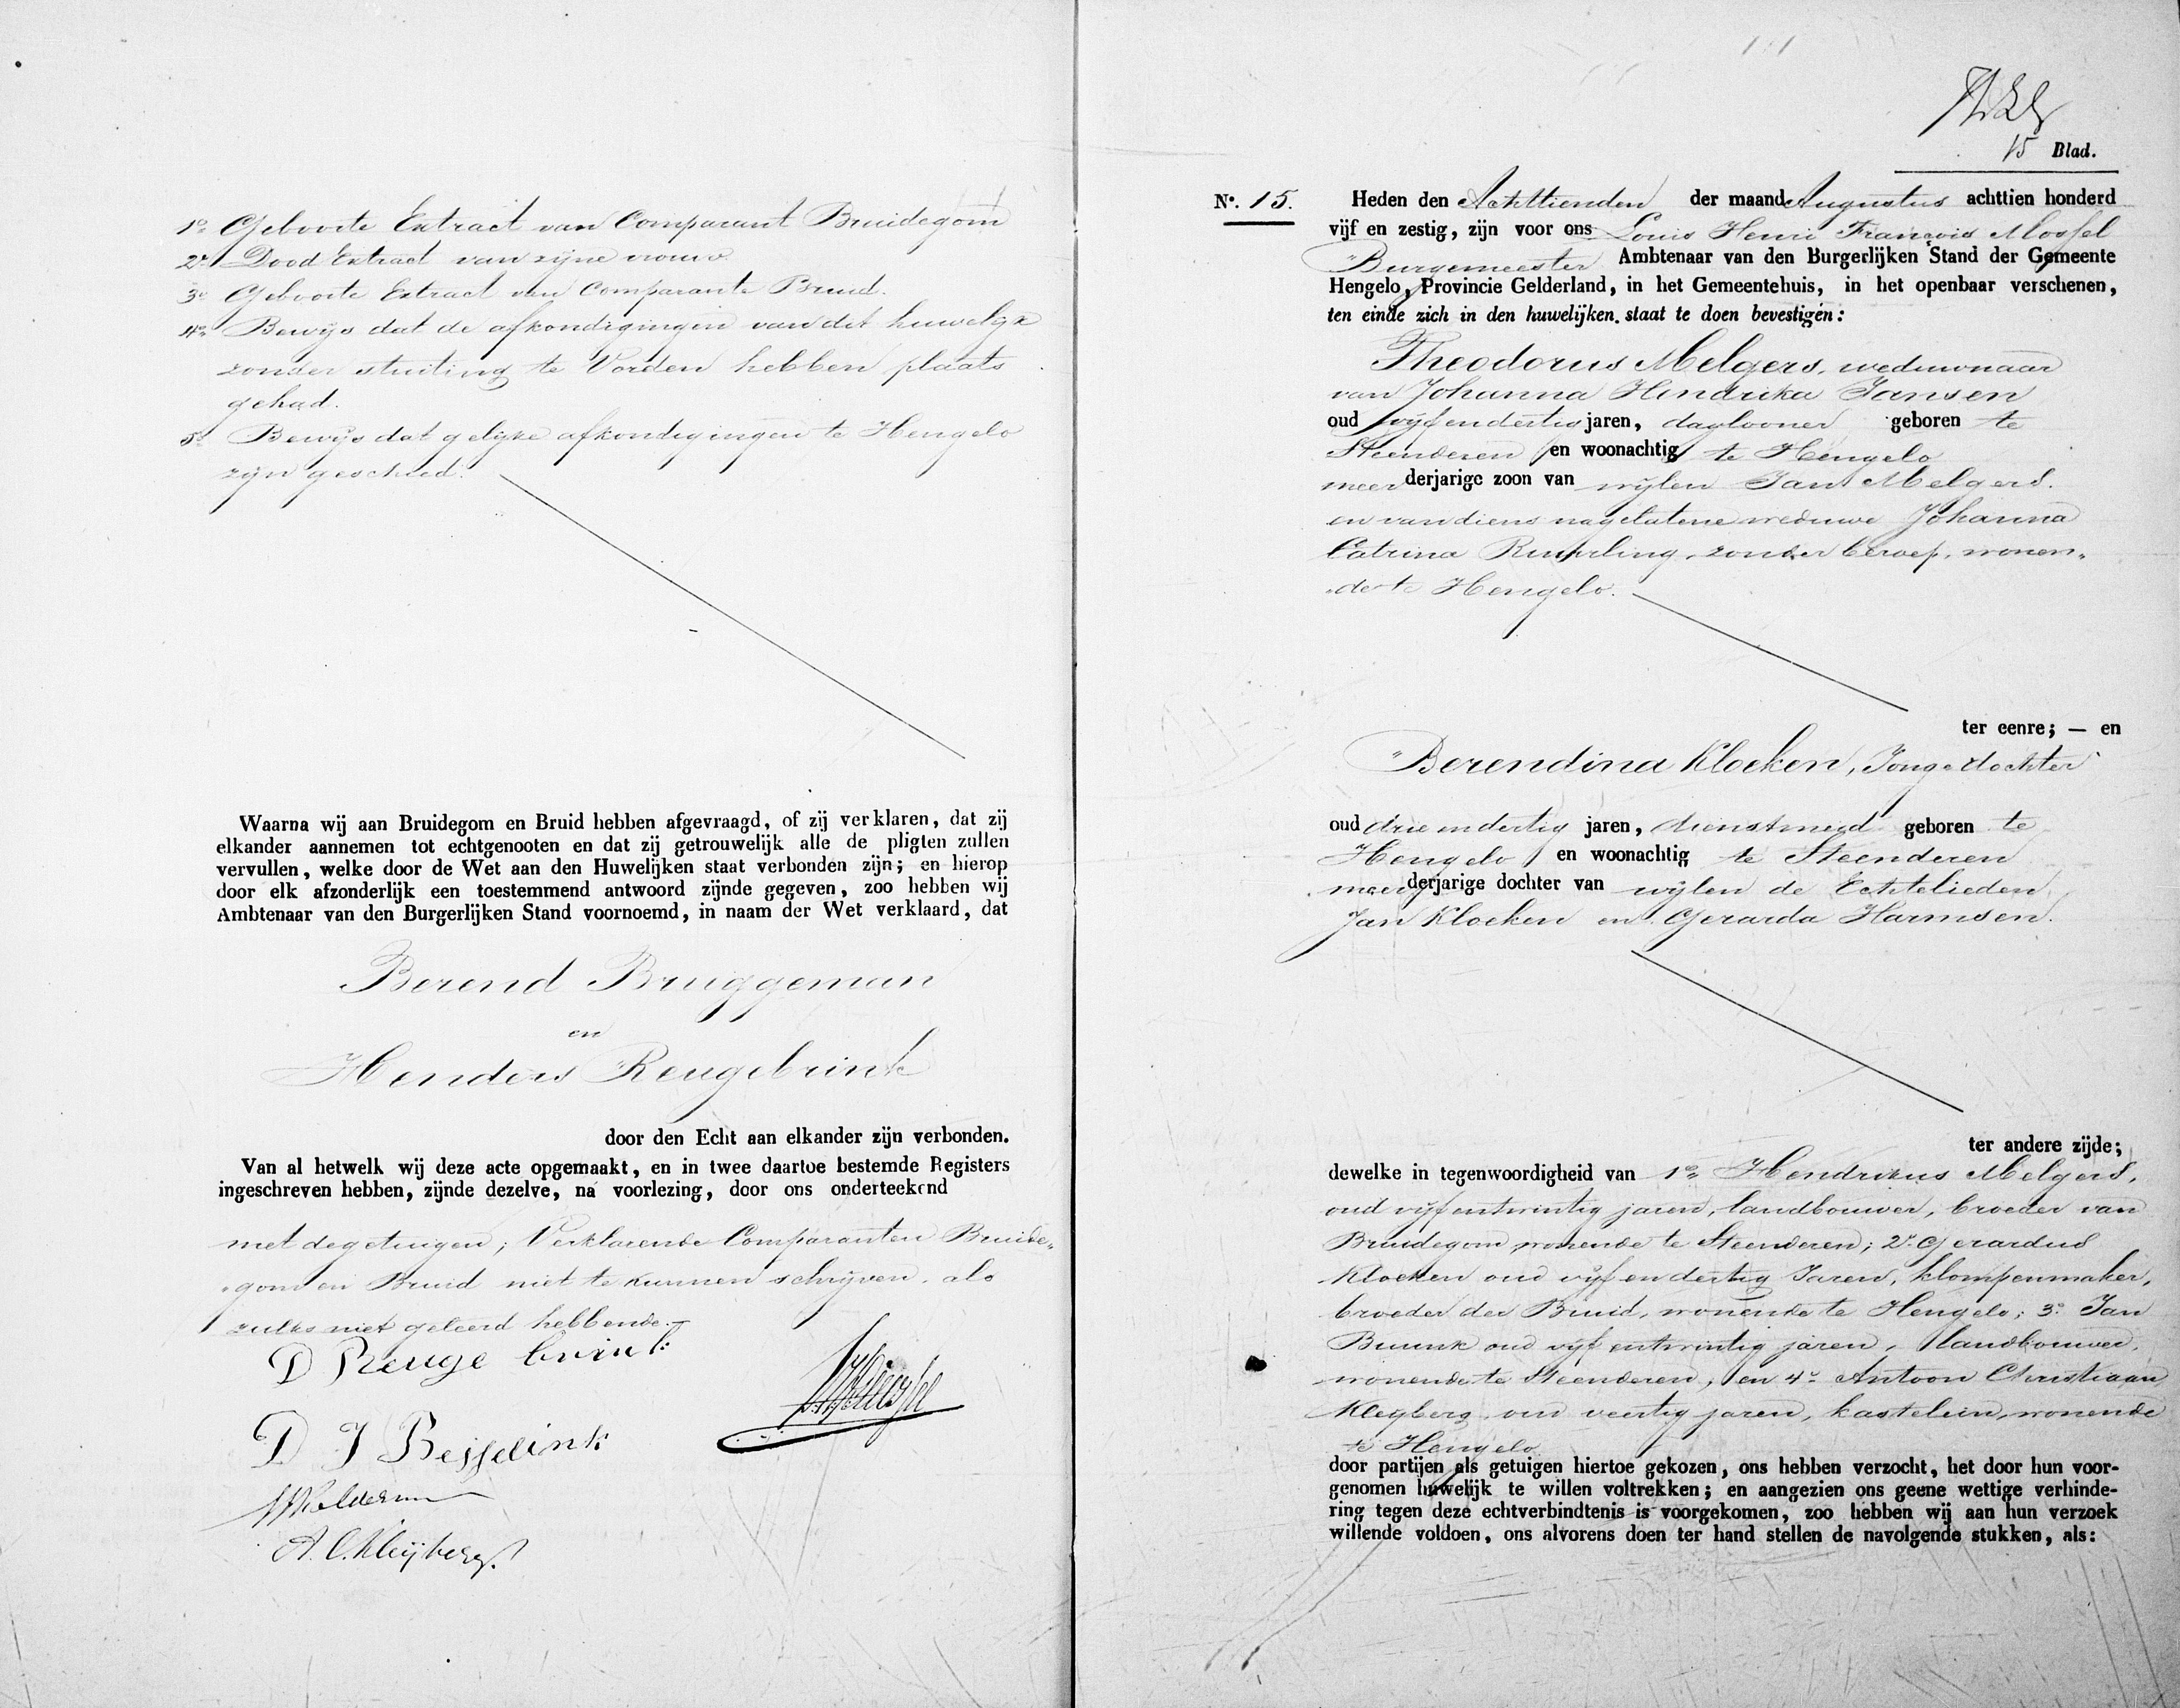 1º Geboorte Extract van Comparant Bruidegom
2º Dood Extract van zijne vrouw.
3º Geboorte Extract van Comparante Bruid.
4º Bewijs dat de afkondigingen van dit huwelijk
zonder stuiting te Vorden hebben plaats
gehad.
5º Bewijs dat gelijke afkondigingen te Hengelo
zijn geschied.
Waarna wij aan Bruidegom en Bruid hebben afgevraagd, of zij verklaren, dat zij
elkander aannemen tot echtgenooten en dat zij getrouwelijk alle de pligten zullen
vervullen, welke door de Wet aan den Huwelijken staat verbonden zijn; en hierop
door elk afzonderlijk een toestemmend antwoord zijnde gegeven, zoo hebben wij
Ambtenaar van den Burgerlijken Stand voornoemd, in naam der Wet verklaard, dat
Berend Bruggeman
en
Henders Reugebrink
door den Echt aan elkander zijn verbonden.
Van al hetwelk wij deze acte opgemaakt, en in twee daartoe bestemde Registers
ingeschreven hebben, zijnde dezelve, na voorlezing, door ons onderteekend
met de getuigen; Verklarende Comparanten Bruide„
„gom en Bruid niet te kunnen schrijven, als
zulks niet geleerd hebbende.
D Reuge brink
D J Besselink
A. C. Kleijberg.
15 Blad.
Nº. 15. Heden den Achttienden der maand Augustus achttien honderd
vijf en zestig, zijn voor ons Louis Henri François Mossel
Burgemeester Ambtenaar van den Burgerlijken Stand der Gemeente
Hengelo, Provincie Gelderland, in het Gemeentehuis, in het openbaar verschenen,
ten einde zich in den huwelijken staat te doen bevestigen:
Theodorus Melgers, weduwnaar
van Johanna Hendrika Jansen
oud vijf en dertig jaren, daglooner geboren te
Steenderen en woonachtig te Hengelo
meerderjarige zoon van wijlen Jan Melgers.
en van diens nagelatene weduwe Johanna
Catrina, zonder beroep, wonen„
„de te Hengelo.
ter eenre; — en
Berendina Kloeken, Jongedochter
oud drie en dertig jaren, dienstmeid geboren te
Hengelo en woonachtig te Steenderen
meerderjarige dochter van wijlen de Echtelieden
Jan Kloeken en Gerarda Harmsen.
ter andere zijde;
dewelke in tegenwoordigheid van 1º Hendrikus Melgers,
oud vijf en twintig jaren, landbouwer, broeder van
Bruidegom wonende te Steenderen; 2º Gerardus
Kloeken oud vijf en dertig Jaren, klompenmaker,
broeder der Bruid, wonende te Hengelo; 3º Jan
Buunk oud vijf en twintig jaren, landbouwer,
wonende te Steenderen, en 4º Antoon Christiaan
Kleijberg, oud veertig jaren, kastelein, wonende
te Hengelo
door partijen als getuigen hiertoe gekozen, ons hebben verzocht, het door hun voor-
genomen huwelijk te willen voltrekken; en aangezien ons geene wettige verhinde-
ring tegen deze echtverbindtenis is voorgekomen, zoo hebben wij aan hun verzoek
willende voldoen, ons alvorens doen ter hand stellen de navolgende stukken, als: